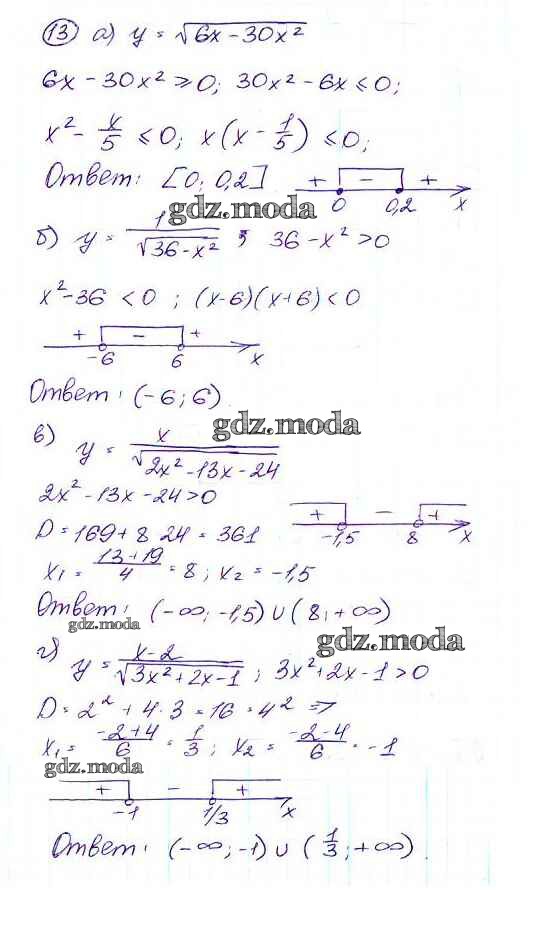 13 а) y = √(6x - 30x²)
6x - 30x² ≥ 0; 30x² - 6x ≤ 0;
x² - x/5 ≤ 0; x(x - 1/5) ≤ 0;
Ответ: [0; 0,2]
+ - +
0 0,2 x
gdz.moda
б) y = 1/√(36 - x²); 36 - x² > 0
x² - 36 < 0 ; (x-6)(x+6) < 0
+ - +
-6 6 x
Ответ: (-6; 6)
gdz.moda
в) y = x/√(2x² - 13x - 24)
2x² - 13x - 24 > 0
+ - +
-1,5 8 x
D = 169 + 8 24 = 361
x₁ = (13+19)/4 = 8; x₂ = -1,5
Ответ: (-∞; -1,5) ∪ (8; +∞)
gdz.moda
gdz.moda
г) y = (x-2)/√(3x² + 2x - 1) ; 3x² + 2x - 1 > 0
D = 2² + 4·3 = 16 = 4² ⇒
x₁ = (-2+4)/6 = 1/3; x₂ = (-2-4)/6 = -1
gdz.moda
+ - +
-1 1/3 x
Ответ: (-∞; -1) ∪ (1/3; +∞).